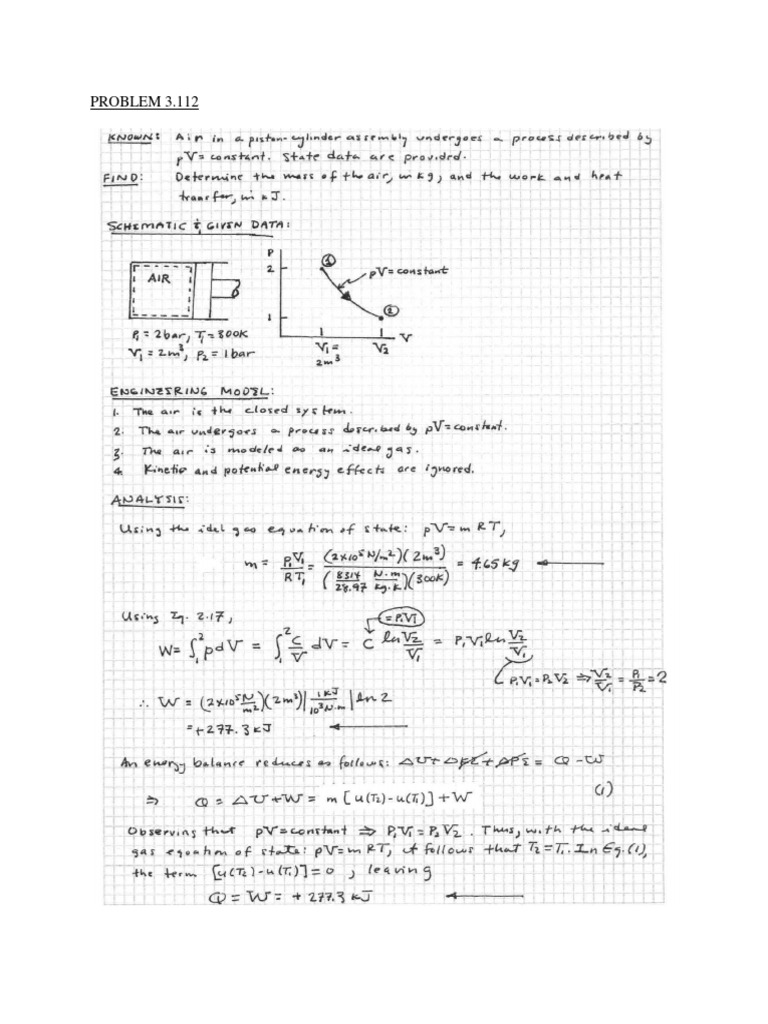 PROBLEM 3.112
KNOWN: Air in a piston-cylinder assembly undergoes a process described by
pV = constant. State data are provided.
FIND: Determine the mass of the air, in kg, and the work and heat
transfer, in kJ.
SCHEMATIC & GIVEN DATA:
AIR
P₁ = 2 bar, T₁ = 300K
V₁ = 2 m³, P₂ = 1 bar
P
2
1
①
pV = constant
②
V₁ =
2 m³
V₂
V
ENGINEERING MODEL:
1. The air is the closed system.
2. The air undergoes a process described by pV = constant.
3. The air is modeled as an ideal gas.
4. Kinetic and potential energy effects are ignored.
ANALYSIS:
Using the idel gas equation of state: pV = m RT,
m = P₁V₁/RT₁ = (2×10⁵ N/m²)(2m³)/((8314/28.97 N·m/kg·K)(300K)) = 4.65 kg
Using Eq. 2.17,
W = ∫₁² p dV = ∫₁² C/V dV = C ln V₂/V₁ = P₁V₁ ln V₂/V₁
= P₁V₁
P₁V₁ = P₂V₂ ⇒ V₂/V₁ = P₁/P₂ = 2
∴ W = (2×10⁵ N/m²)(2m³)|1 kJ/10³ N·m| ln 2
= +277.3 kJ
An energy balance reduces as follows: ΔU + ΔKE + ΔPE = Q - W
⇒ Q = ΔU + W = m [u(T₂) - u(T₁)] + W (1)
Observing that pV = constant ⇒ P₁V₁ = P₂V₂. Thus, with the ideal
gas equation of state: pV = m RT, it follows that T₂ = T₁. In Eq. (1),
the term [u(T₂) - u(T₁)] = 0, leaving
Q = W = + 277.3 kJ